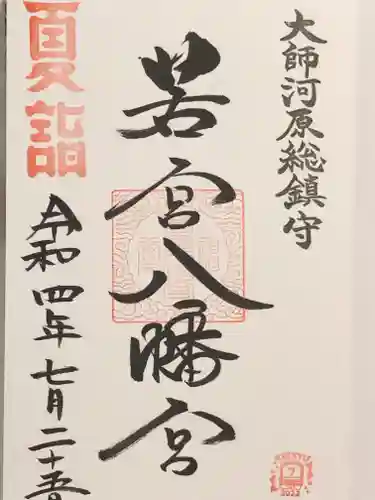 大師河原総鎮守
若宮八幡宮
夏詣
令和四年七月二十五
7
2022